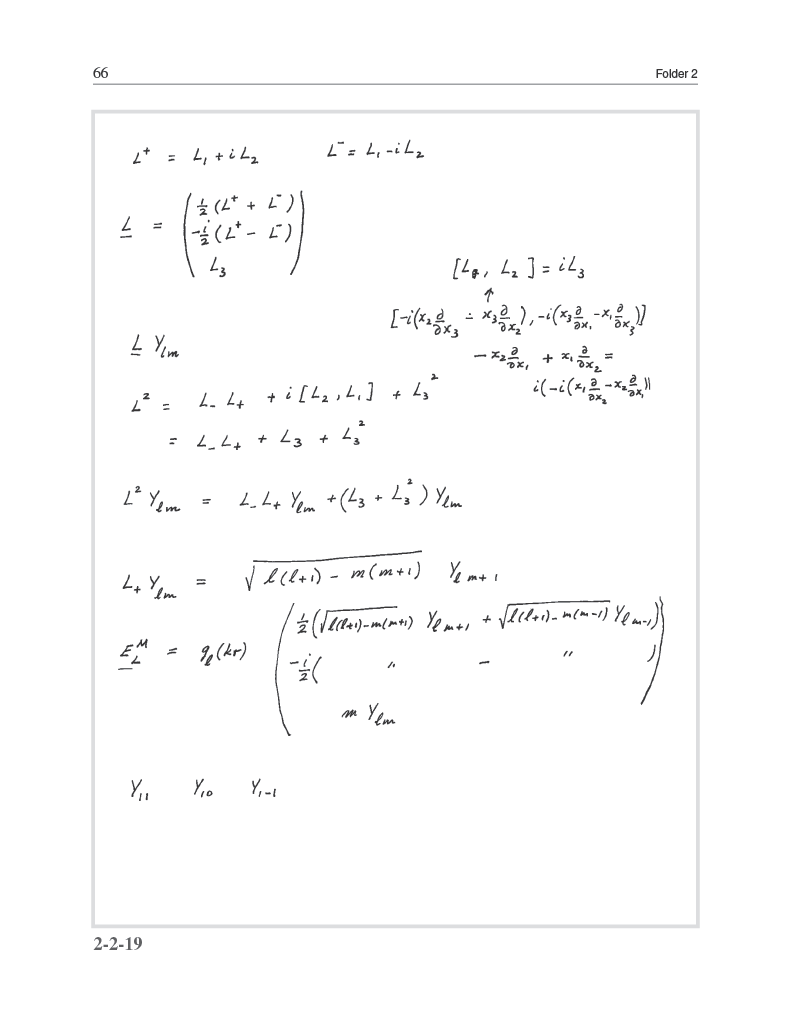 66 Folder 2
L⁺ = L₁ + i L₂ L⁻ = L₁ - i L₂
½ (L⁺ + L⁻)
L = -i/2 (L⁺ - L⁻)
L₃
[L₁, L₂] = i L₃
↑
[-i(x₂ ∂/∂x₃ - x₃ ∂/∂x₂), -i(x₃ ∂/∂x₁ - x₁ ∂/∂x₃)]
L Yₗₘ
- x₂ ∂/∂x₁ + x₁ ∂/∂x₂ =
i(-i(x₁ ∂/∂x₂ - x₂ ∂/∂x₁))
L² = L₋ L₊ + i [L₂, L₁] + L₃²
= L₋ L₊ + L₃ + L₃²
L² Yₗₘ = L₋ L₊ Yₗₘ + (L₃ + L₃²) Yₗₘ
L₊ Yₗₘ = √(l(l+1) - m(m+1)) Yₗ ₘ₊₁
½ (√(l(l+1)-m(m+1)) Yₗ ₘ₊₁ + √(l(l+1)-m(m-1)) Yₗ ₘ₋₁)
E_L^M = gₗ(kr) -i/2 ( " - " )
m Yₗₘ
Y₁₁ Y₁₀ Y₁₋₁
2-2-19